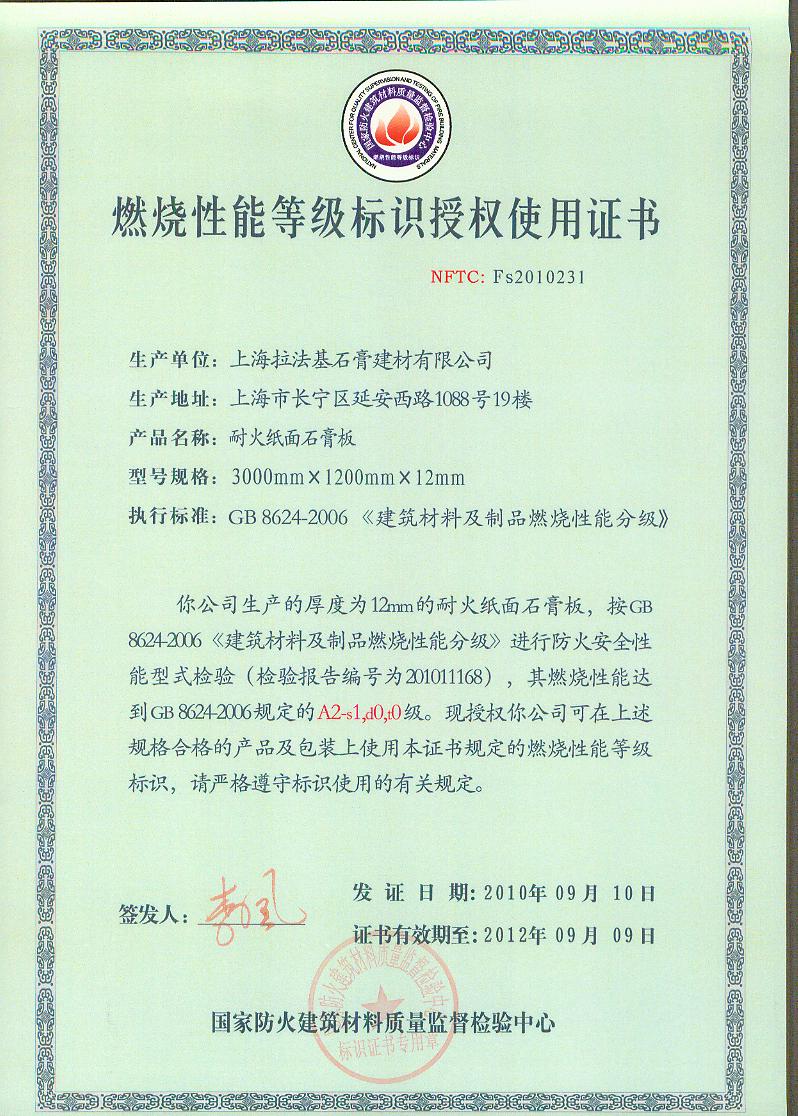 NATIONAL CENTER FOR QUALITY SUPERVISION AND TESTING OF FIRE BUILDING MATERIALS
国家防火建筑材料质量监督检验中心
燃烧性能等级标识
燃烧性能等级标识授权使用证书
NFTC: Fs2010231
生产单位：上海拉法基石膏建材有限公司
生产地址：上海市长宁区延安西路1088号19楼
产品名称：耐火纸面石膏板
型号规格：3000mm×1200mm×12mm
执行标准：GB 8624-2006《建筑材料及制品燃烧性能分级》
你公司生产的厚度为12mm的耐火纸面石膏板，按GB
8624-2006《建筑材料及制品燃烧性能分级》进行防火安全性
能型式检验（检验报告编号为201011168），其燃烧性能达
到GB 8624-2006规定的A2-s1,d0,t0级。现授权你公司可在上述
规格合格的产品及包装上使用本证书规定的燃烧性能等级
标识，请严格遵守标识使用的有关规定。
发证日期：2010年09月10日
签发人：
证书有效期至：2012年09月09日
国家防火建筑材料质量监督检验中心
标识证书专用章